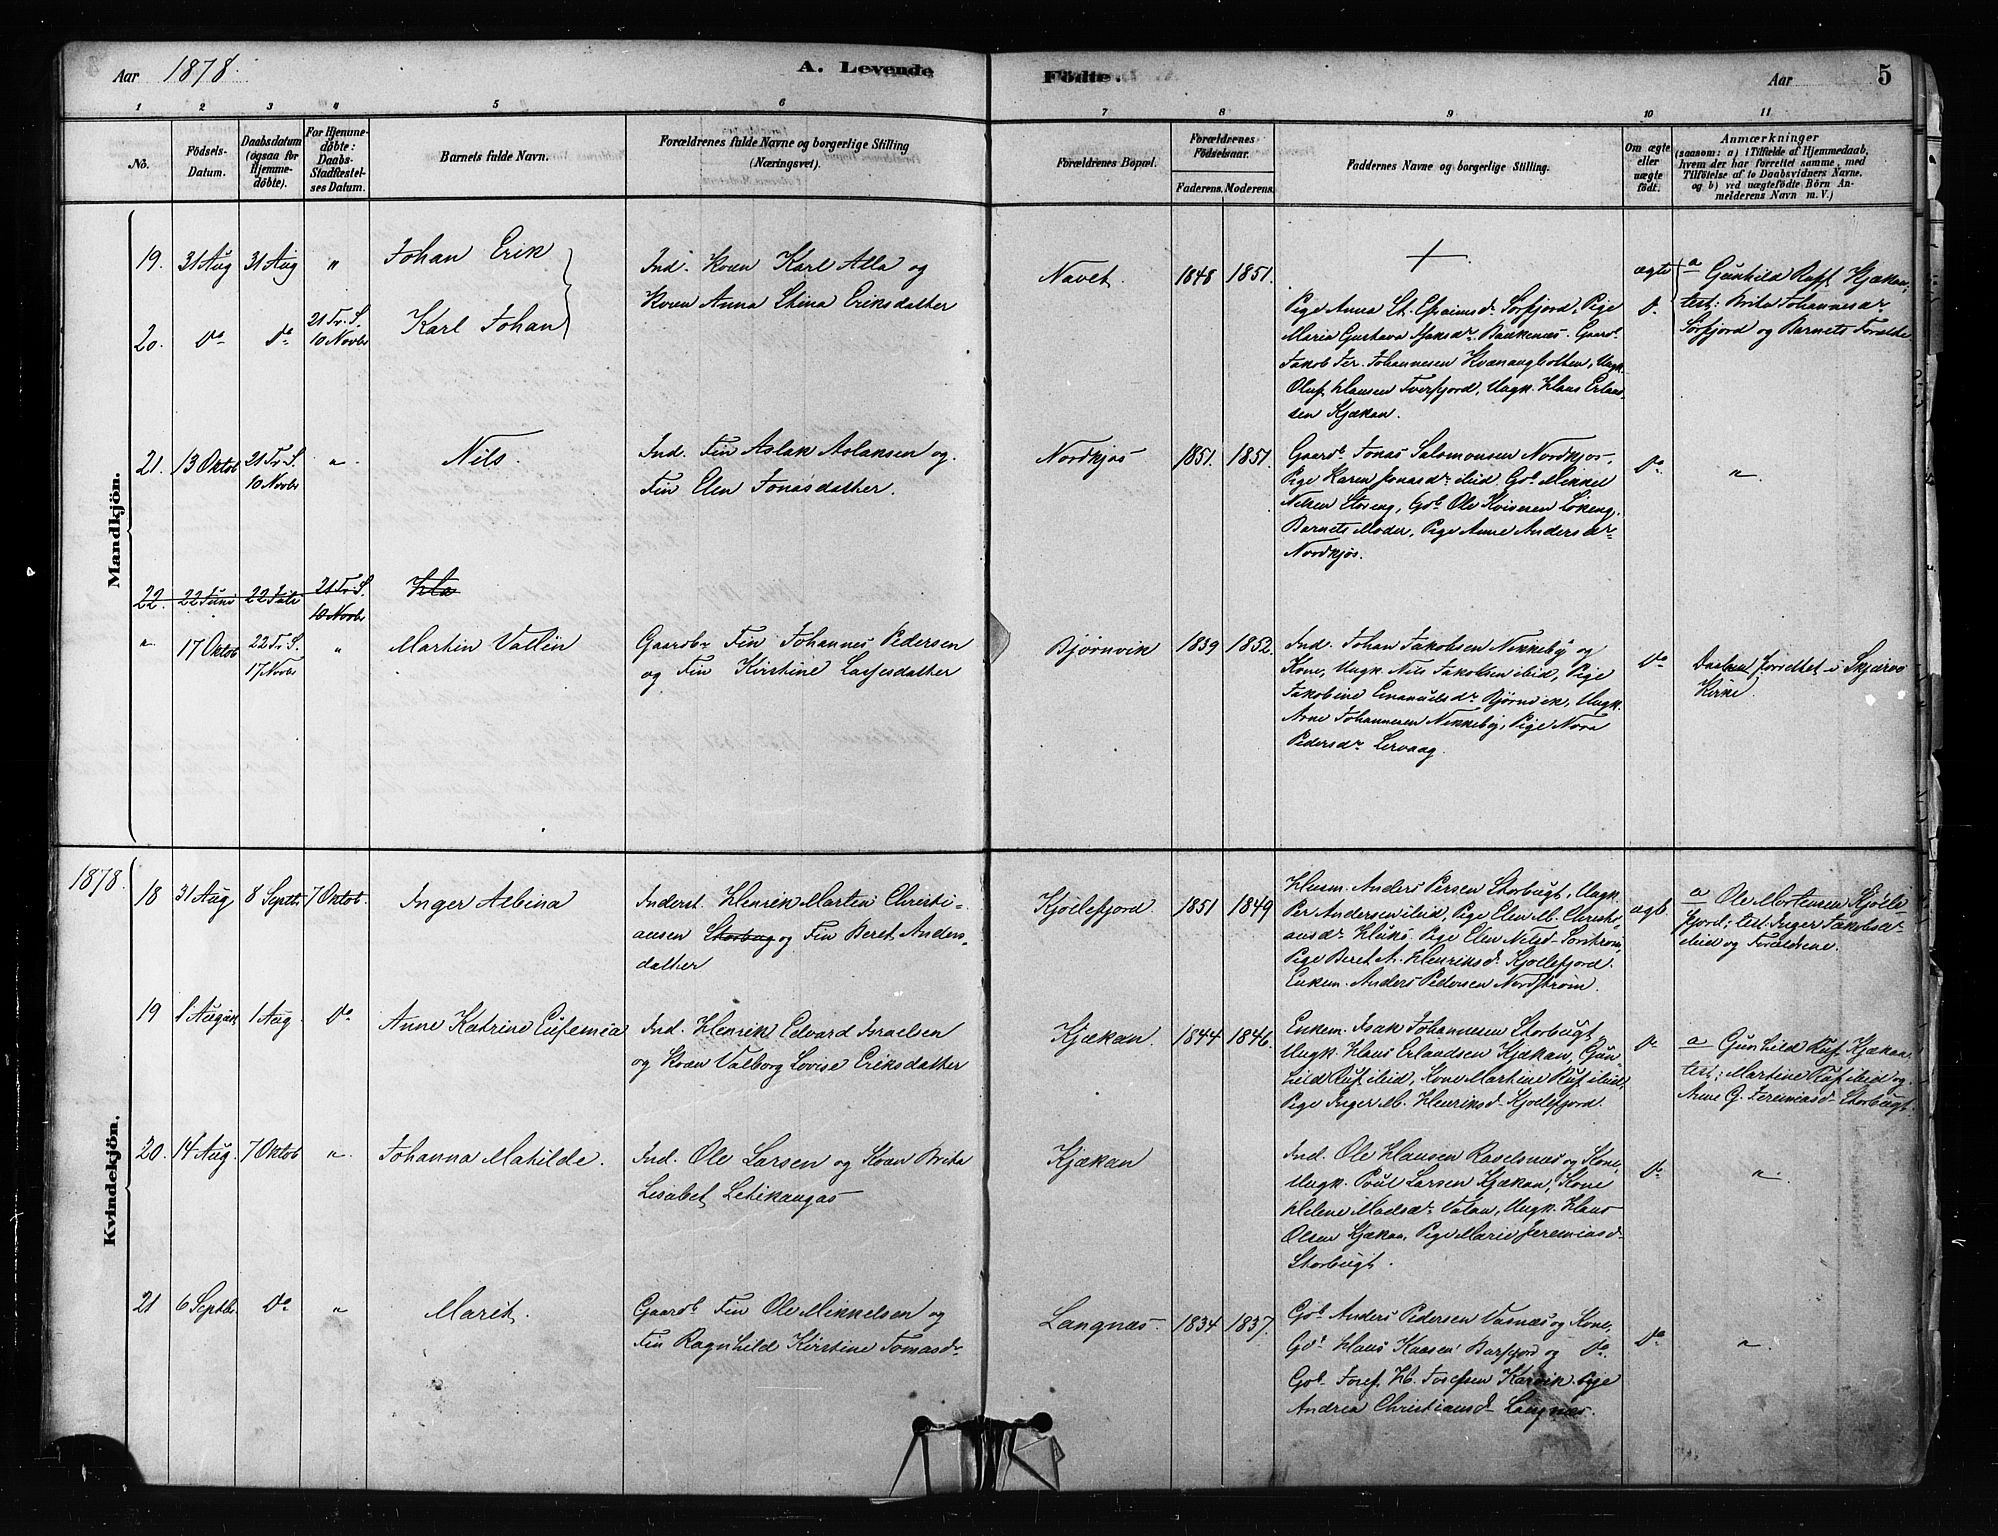 Aar 1878.
A. Levende
Födte.
Aar
5
1 2 3 4 5 6 7 8 9 10 11
No.
Födsels-
Datum.
Daabsdatum
(ogsaa for
Hjemme-
døbte).
For Hjemme-
døbte:
Daabs-
Stadfæstel-
ses Datum.
Barnets fulde Navn.
Forældrenes fulde Navne og borgerlige Stilling
(Næringsvei).
Forældrenes Bopæl.
Forældrenes
Födselsaar.
Faderens. Moderens.
Faddernes Navne og borgerlige Stilling.
Om ægte
eller
uægte
födt.
Anmærkninger
(saasom: a) i Tilfælde af Hjemmedaab,
hvem der har forrettet samme, med
Tilföielse af to Daabsvidners Navne.
og b) ved uægtefödte Börn An-
melderens Navn m. V.)
Mandkjön.
19. 31 Aug 31 Aug " Johan Erik
Ind. Kvæn Karl Alla og
Kvæn Anna Stina Eriksdatter
Navet. 1848 1851.
+
ægte
a Gunhild Ruff Kjækan,
test: Brita Johannesdr
Sörfjord og Barnets Forældre
20. Do Do 21 Tr. S.
10 Novbr
Karl Johan
Pige Anna St. Efraimsdr Sörfjord, Pige
Maria Gustava Isaksdr Baukenæs. Gaardb
Jakob Jer. Johannesen Kvænangbotten, Ungk.
Oluf Hansen Tverfjord, Ungk. Hans Erland-
sen Kjækan.
Do
21. 13 Oktob 21 Tr. S.
10 Novbr
" Nils.
Ind. Fin Aslak Aslaksen og
Fin Elen Jonasdatter.
Nordkjos 1851. 1851.
Gaardb Jonas Salomonsen Nordkjos,
Pige Karen Jonasdr ibid, Gdb Mikkel
Nilsen Storeng, Gdb Ole Kviveren Lökeng.
Barnets Moder, Pige Anne Andersdr
Nordkjös.
Do "
22. 22 Juni 22 Juli 21 Tr. S.
10 Novbr
Ha
" 17 Oktob 22 Tr. S.
17 Novbr
" Martin Vallin
Gaardbr Fin Johannes Pedersen
og Fin Kirstine Lassesdatter
Bjørnvik 1839 1852.
Ind. Johan Jakobsen Nikkeby og
Kone, Ungk. Nils Jakobsen ibid, Pige
Jakobine Emanuelsdr Bjørnvik, Ungk.
Arne Johannesen Nikkeby, Pige Nora
Pedersdr Lervaag.
Do
Daaben forrettet i Skjærvö
Kirke.
1878.
Kvindekjön.
18 31 Aug 8 Septb 7 Oktob. Inger Albina
Inderst. Henrik Marten Christi-
ansen Storbug og Fin Beret Anders-
datter
Kjøllefjord. 1851 1849
Husm. Anders Persen Storbugt, Ungk.
Per Andersen ibid, Pige Elen M. Christi-
ansdr. Pige Elen Nilsd. Sørstrøm,
Pige Beret A. Henriksd. Kjøllefjord.
Enkem. Anders Pedersen Nordstrøm.
ægt.
a Ole Mortensen Kjølle-
fjord; test. Inger Jakobsdr
ibid og Forældrene.
19 1 August 1 Aug. Do Anne Katrine Eufemia
Ind. Henrik Edvard Israelsen
og Kvæn Valborg Lovise Eriksdatter
Kjækan. 1844 1846.
Enkem. Isak Johannesen Storbugt,
Ungk. Hans Erlandsen Kjækan, Gun-
hild Ruf ibid, Kone Martine Ruf ibid,
Pige Inger M. Henriksd. Kjøllefjord.
Do
a Gunhild Ruf Kjækan.
test; Martine Ruf ibid og
Anne G. Jeremiasd. Storbugt.
20. 14 Aug. 7 Oktob " Johanna Matilde.
Ind. Ole Larsen og Kvæn Brita
Lisabet Letikangas
Kjækan
Ind. Ole Hansen Raselsnæs og Kone,
Ungk. Poul Larsen Kjækan, Kone
Helene Madsdr. Vatan, Ungk. Hans
Olsen Kjækan, Pige Marie Jeremiasd
Storbugt.
Do "
21 6 Septbr. Do " Marit.
Gaardb Fin Ole Mikkelsen og
Fin Ragnhild Kirstine Tomasdr
Langnæs. 1834 1837.
Gdb Anders Pedersen Vasnæs og Kone,
Gdb Hans Kaasen Burfjord og Do.
Gdb Josef H. Josefsen Karvik Pige
Andrea Christiansd. Langnæs.
Do "